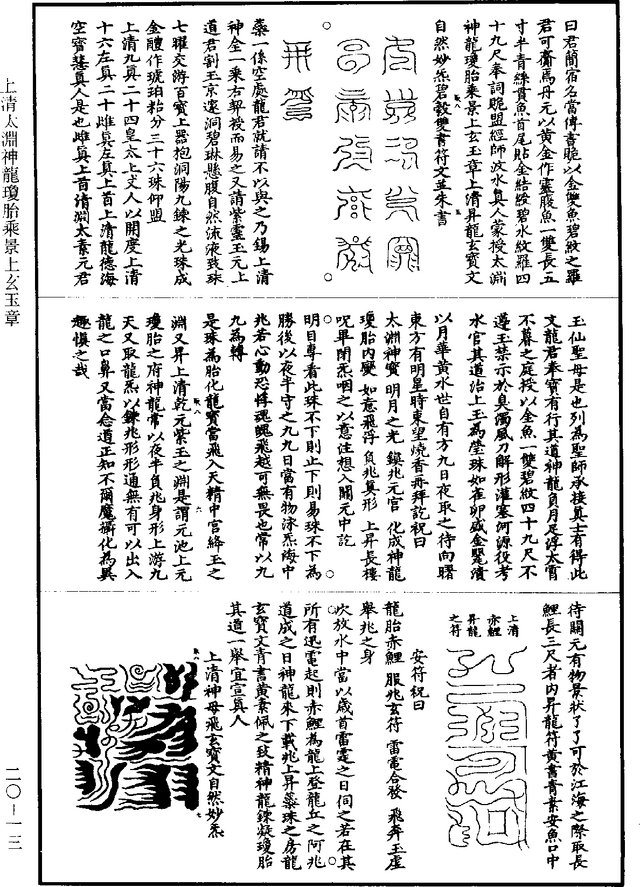 曰君蘭宿名當傳書脆以金雙魚碧紋之羅
君可齎為丹元以黃金作靈腹魚一雙長五
寸半青絲貫魚首尾貼金結綬碧水紋羅四
十九尺奉詞脆盟經師波水真人蒙授太淵
神龍瓊胎乘景上玄玉章上清昇龍玄寶文
自然妙炁碧縠雙書符文並朱書
蘂一係空處龍君就請不以與之乃錫上清
神全一乘右契授而易之又請紫靈玉元上
道君割玉京邃洞碧琳懸腹自然流液致珠
七曜交游百寶上器抱洞陽九鍊之光珠成
金體作琥珀粭分三十六珠仰盟
上清九真二十四皇太上丈人以開度上清
十六左真二十雌真左真上首上清龍德海
空寶慧真人是也雌真上首清淵太素元君
玉仙聖母是也列為聖師承接真士有得此
文龍君奉寶有行其道神龍負月足浮太霄
不暮之庭授以金魚一雙碧紋四十九尺不
遵玉禁示於臭濁風刀解形灌塞河源役考
水官其道治上玉為瑩珠如雀卵盛金鑿漬
以月華黃水世自有方九日夜取之待向曙
東方有明星時東望燒香再拜訖祝曰
太淵神寶 明月之光 鍈兆元官 化成神龍
瓊胎內變 如意飛浮 負兆真形 上昇長樓
呪畢閉炁咽之以意住想入關元中訖
明目專看此珠不下則止下則易珠不下為
勝後以夜半守之九九日當有物沫炁海中
兆若心動恐悸魂魄飛越可無畏也常以九
九為轉
是珠為胎化龍寶當飛入天精中宮絳玉之
淵又昇上清乾元紫玉之淵是謂元池上元
瓊胎之府神龍常以夜半負兆身形上游九
天又取龍炁以鍊兆形形通無有可以出入
龍之口鼻又當念道正知不爾魔攝化為異
趣慎之哉
待關元有物景狀了了可於江海之際取長
鯉長三尺者內昇龍符黃書青素安魚口中
上清
赤鯉
昇龍
之符
安符祝曰
龍胎赤鯉 服兆玄符 雷電合發 飛奔玉虛
舉兆之身
吹放水中當以歲首雷霆之日伺之若在其
所有迅電起則赤鯉為龍上登龍丘之阿兆
道成之日神龍來下載兆上昇蘂珠之房龍
玄寶文青書黃素佩之致精神龍鍊凝瓊胎
其道一舉宜宣真人
上清神母飛玄寶文自然妙炁
上清太淵神龍瓊胎乘景上玄玉章
二〇-一三